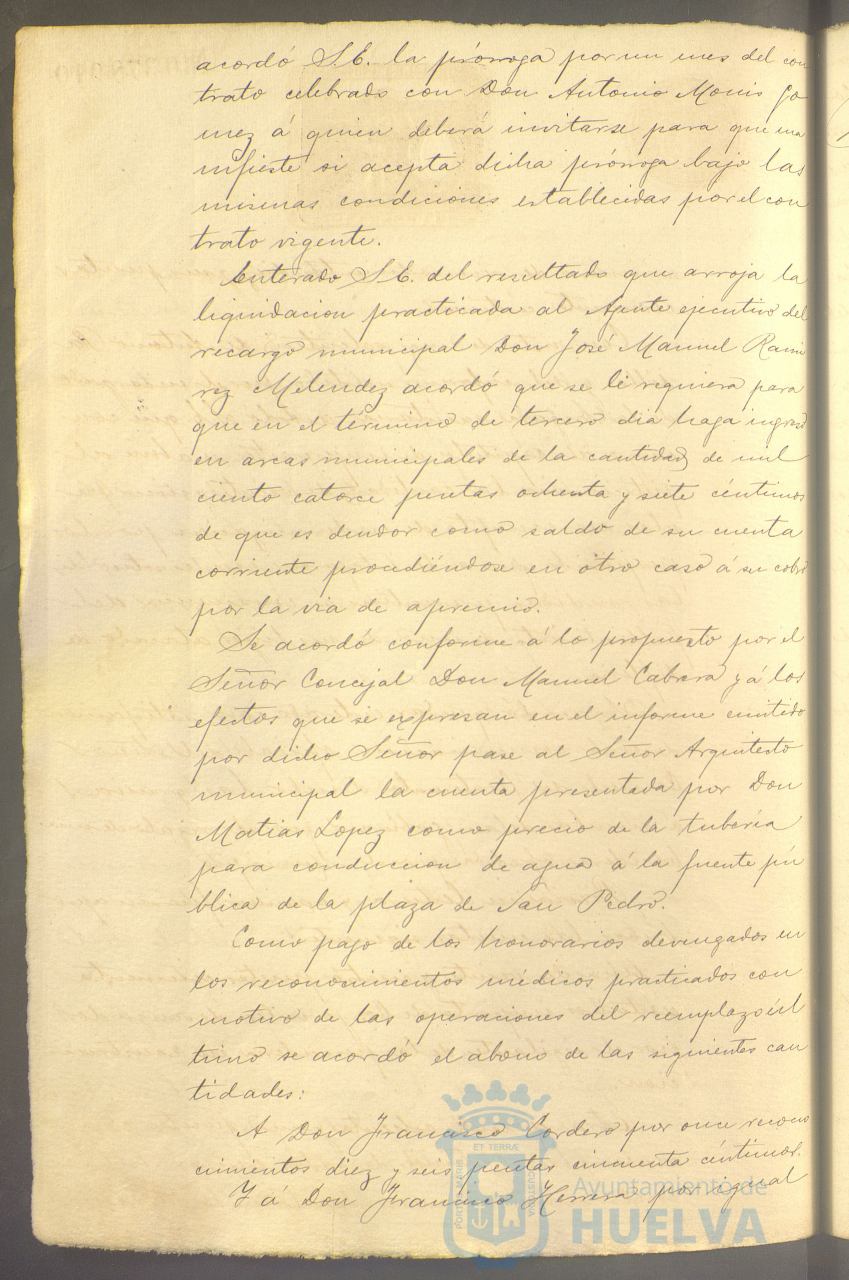 acordó S.E. la prórroga por un mes del con
trato celebrado con Don Antonio Monis Go
mez á quien deberá invitarse para que ma
nifieste si acepta dicha prórroga bajo las
mismas condiciones establecidas por el con
trato vigente.
Enterado S.E. del resultado que arroja la
liquidacion practicada al Agente ejecutivo del
recargo municipal Don José Manuel Rami
rez Melendez acordó que se le requiera para
que en el término de tercero dia haga ingreso
en arcas municipales de la cantidad de mil
ciento catorce pesetas ochenta y siete céntimos
de que es deudor como saldo de su cuenta
corriente procediéndose en otro caso á su cobro
por la via de apremio.
Se acordó conforme á lo propuesto por el
Señor Concejal Don Manuel Cabrera y á los
efectos que se expresan en el informe emitido
por dicho Señor pase al Señor Arquitecto
municipal la cuenta presentada por Don
Matias Lopez como precio de la tuberia
para conduccion de agua á la fuente pú
blica de la plaza de San Pedro.
Como pago de los honorarios devengados en
los reconocimientos médicos practicados con
motivo de las operaciones del reemplazo úl
timo se acordó el abono de las siguientes can
tidades:
A Don Francisco Cordero por once recono
cimientos diez y seis pesetas cincuenta céntimos.
Y á Don Francisco Herrera por igual
ET TERRÆ
Ayuntamiento de
HUELVA